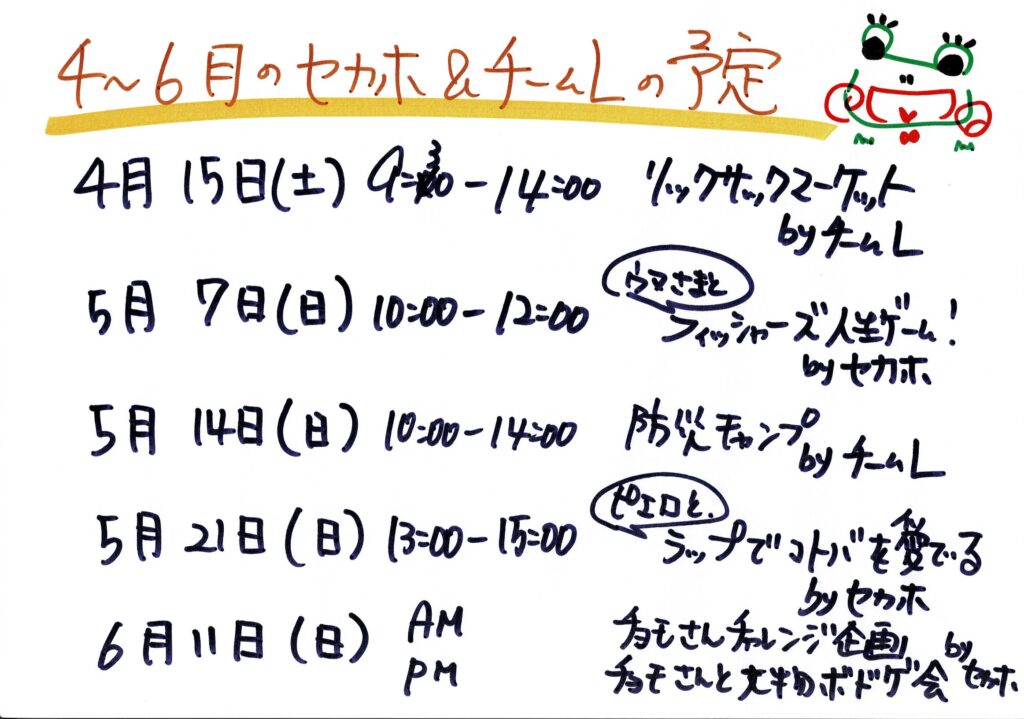 4～6月のセカホ&チームLの予定
4月 15日(土) 9:30-14:00 リックサックマーケット
byチームL
ウマさまと
5月 7日(日) 10:00-12:00 フィッシャーズ人生ゲーム!
byセカホ
5月 14日(日) 10:00-14:00 防災キャンプ
byチームL
ピエロと、
5月 21日(日) 13:00-15:00 ラップでコトバを愛でる
byセカホ
6月11日(日) AM チョモさんチャレンジ企画 by
PM チョモさんと ボドゲ会 セカホ